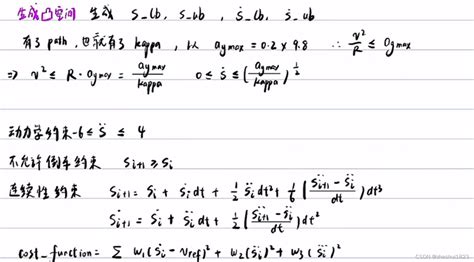 生成凸空间 生成 s_lb, s_ub, ṡ_lb, ṡ_ub
有了 path, 也就有了 kappa, 以 aymax = 0.2 x 9.8 ∴ v²/R ≤ aymax
⇒ v² ≤ R · aymax = aymax/kappa 0 ≤ ṡ ≤ (aymax/kappa)^½
动力学约束 -6 ≤ s̈ ≤ 4
不允许倒车约束 Si+1 ≥ Si
连续性约束 Si+1 = Si + Ṡi dt + ½ S̈i dt² + ⅙ (S̈i+1 - S̈i / dt) dt³
Ṡi+1 = Ṡi + S̈i dt + ½ (S̈i+1 - S̈i / dt) dt²
cost_function = Σ w1(Ṡi - Vref)² + w2(S̈i)² + w3(S⃛i)²